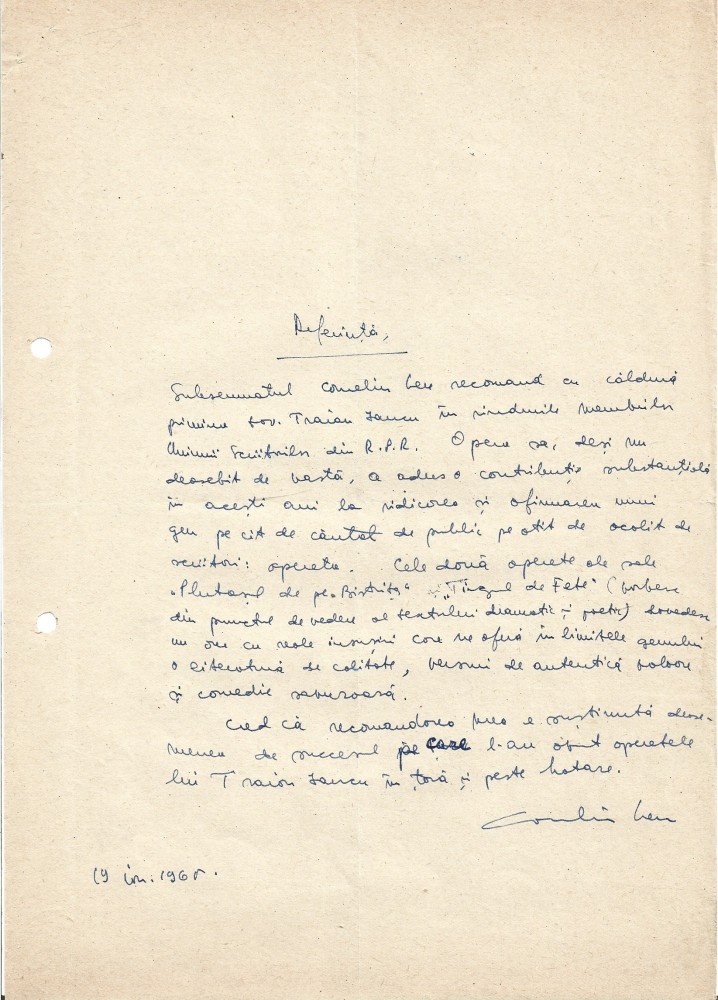 Referință,
Subsemnatul Corneliu Leu recomand cu căldură
primirea tov. Traian Iancu în rîndurile membrilor
Uniunii Scriitorilor din R.P.R. Opera sa, deși nu
deosebit de vastă, a adus o contribuție substanțială
în acești ani la ridicarea și afirmarea unui
gen pe cît de căutat de public pe atît de ocolit de
scriitori: opereta. Cele două operete ale sale
"Plutașul de pe Bistrița" și "Tîrgul de Fete" (vorbesc
din punctul de vedere al textului dramatic și poetic) dovedesc
un om cu reale însușiri care ne oferă în limitele genului
o literatură de calitate, versuri de autentică valoare
și comedie savuroasă.
Cred că recomandarea mea e susținută dease-
menea de succesul pe care l-au obținut operetele
lui Traian Iancu în țară și peste hotare.
Corneliu Leu
19 ian. 1965.